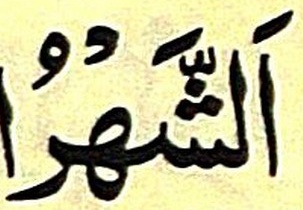 اَلشَّهْرُ ا